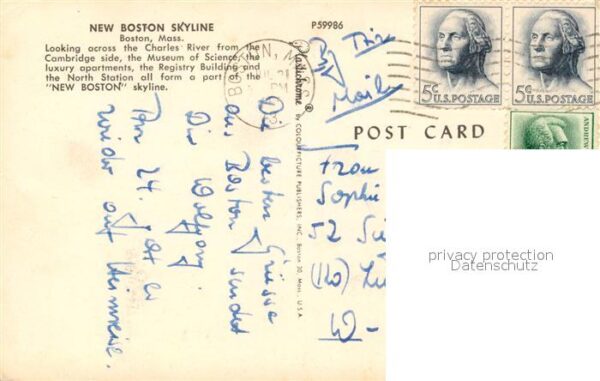 NEW BOSTON SKYLINE
Boston, Mass.
Looking across the Charles River from the
Cambridge side, the Museum of Science, the
luxury apartments, the Registry Building and
the North Station all form a part of the
"NEW BOSTON" skyline.
P59986
By Air
Mail
BOSTON, M
PM
5¢
U.S. POSTAGE
5¢
U.S. POSTAGE
ANDREW
POST CARD
Plastichrome ®
BY COLOURPICTURE PUBLISHERS, INC. Boston 30, Mass., U.S.A.
Die besten Grüsse
aus Boston sendet
Dir Wolfgang
24. ist er
wieder auf Heimreise.
Frau
Sophie
52
W-
privacy protection
Datenschutz